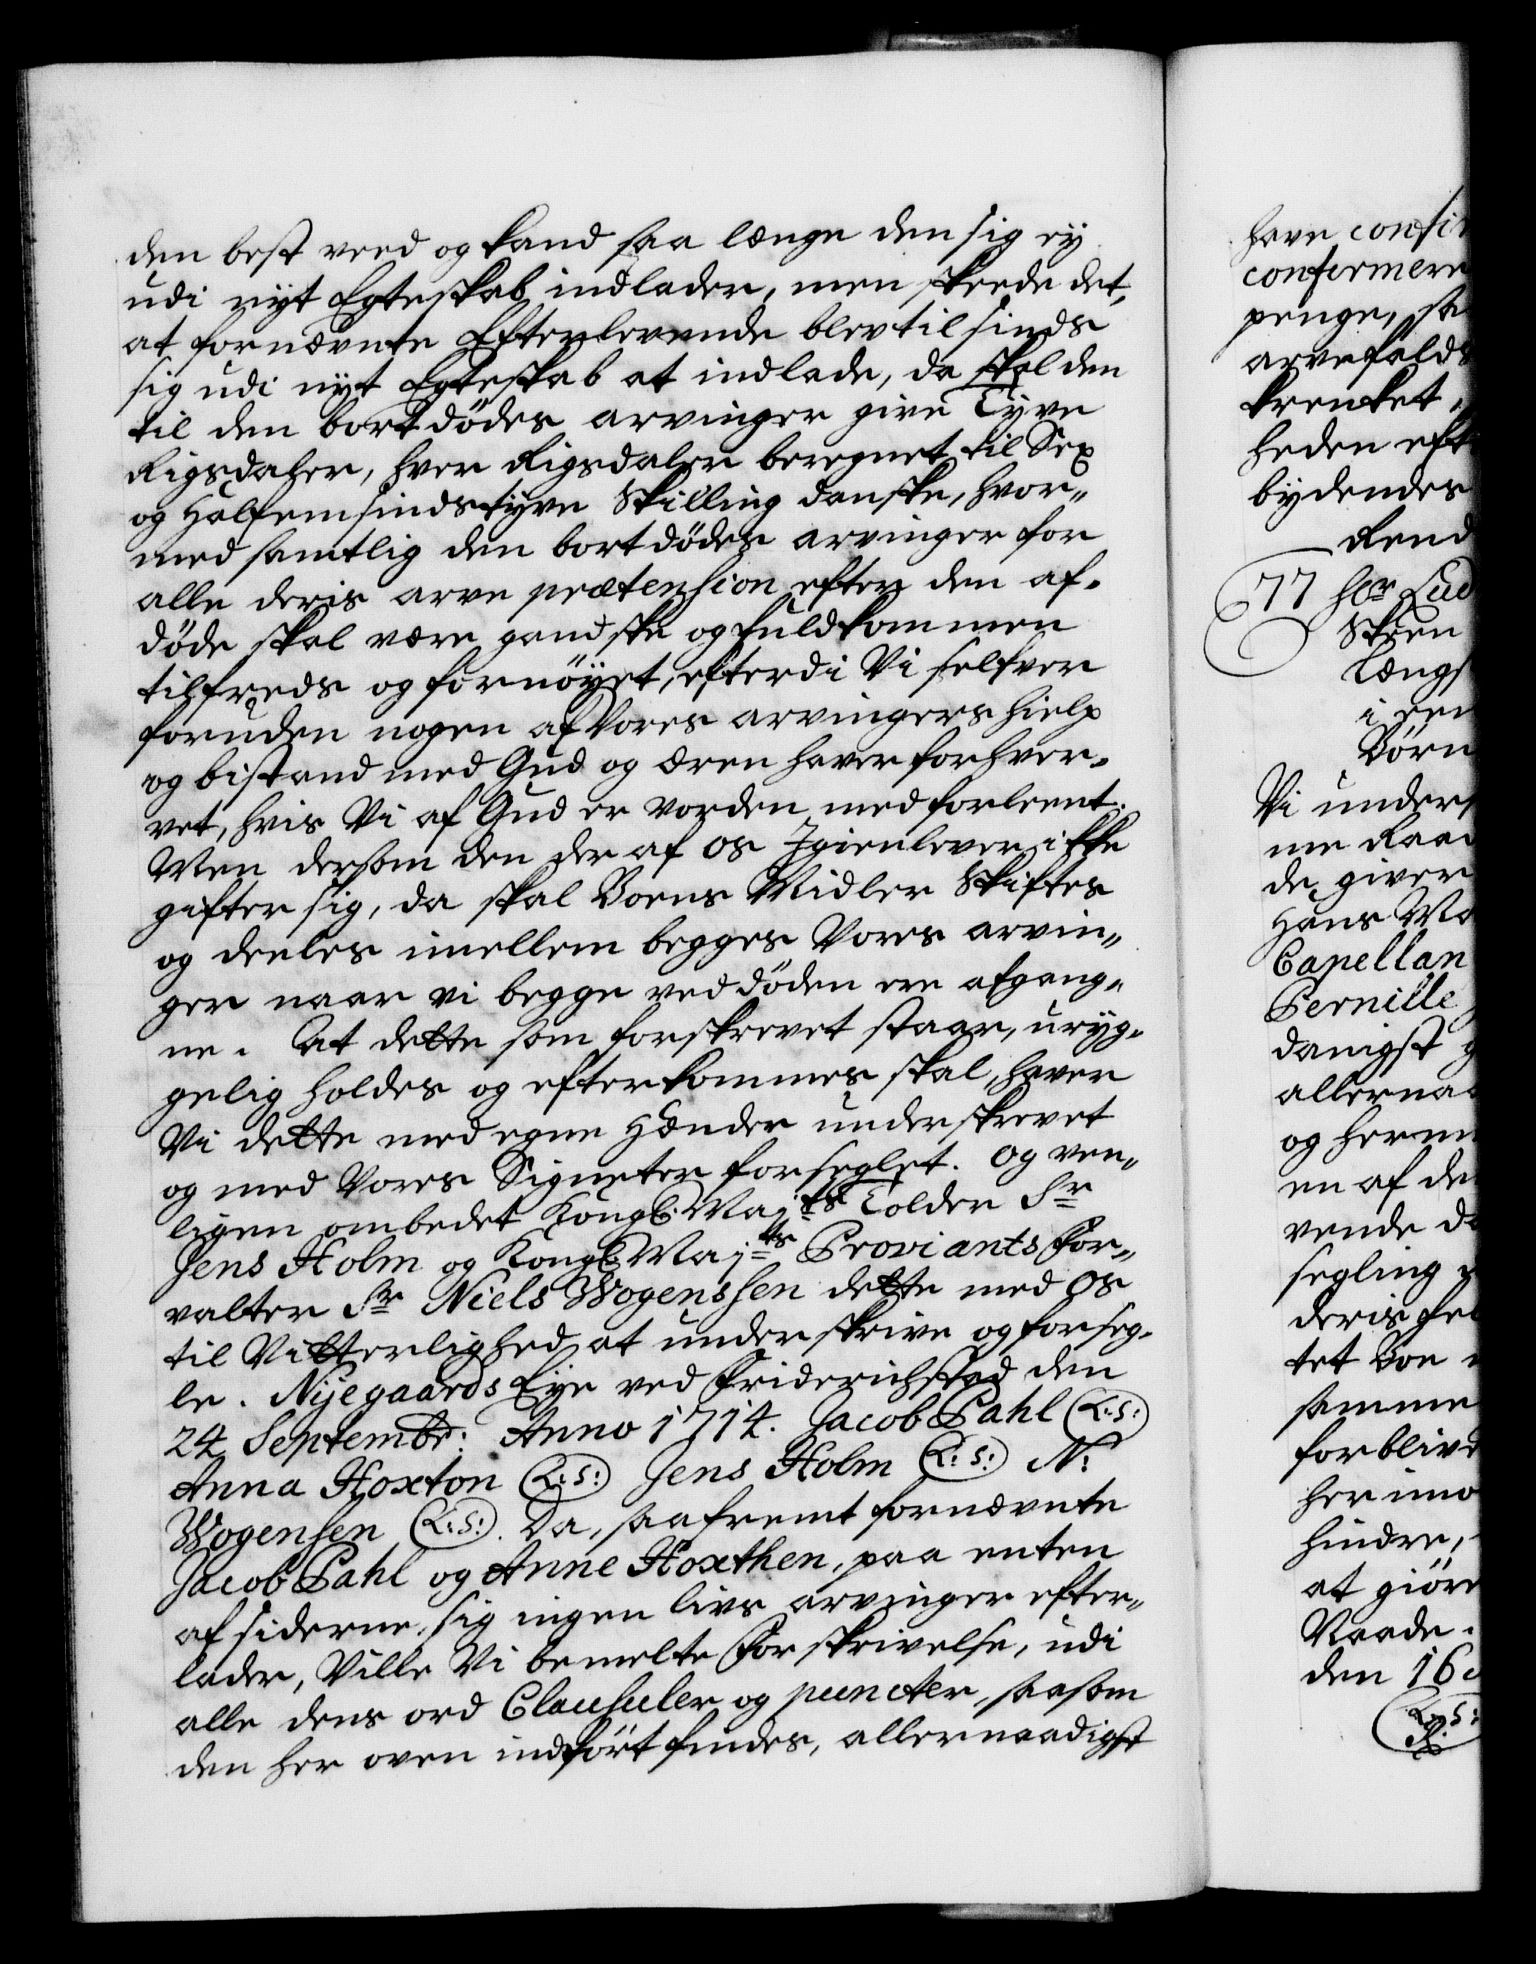 den best veed og kand saa længe den sig ey
udi nyt Egteskab indlader, men skeede det,
at fornævnte Efterlevende blev til sinds
sig udi nyt Egteskab at indlade, da skal den
til den bortdödes arvinger give Tyve
Rigsdaler, hver Rigsdaler beregnet til Sex
og Halfemsindstyve Skilling danske, hvor„
med samtlig den bortdödes arvinger for
alle deris arve prætension efter den af„
döde skal være gandske og fuldkommen
tilfreds og fornöyet, efterdi Vi selfver
foruden nogen af Vores arvingers hielp
og bistand med Gud og æren haver forhver„
vet, hvis Vi af Gud er vorden med forleent.
Men dersom den der af os Igienlever ikke
gifter sig, da skal Boens Midler Skiftes
og deeles imellem begges Vores arvin„
ger naar vi begge ved döden ere afgang„
ne. At dette som forskrevet staar, uryg„
gelig holdes og efterkommes skal, haver
Vi dette med egne Hænder underskrevet
og med Vores Signeter forseglet. Og ven„
ligen ombedet Kongl: Maj:ts Tolder Sr
Jens Holm og Kongl: Maj:ts Proviants For„
valter Sr Niels Wogenssen dette med os
til Vitterlighed at underskrive og forseg„
le. Nyegaards Eye ved Friderichstad den
24 Septembr: Anno 1714. Jacob Pahl (L:S:)
Anna Hoxton (L:S:) Jens Holm (L:S:) N:
Wogensen (L:S:). Da, saafremt fornævnte
Jacob Pahl og Anne Hoxthen, paa enten
af siderne, sig ingen livs arvinger efter„
lader, Ville Vi bemelte Forskrivelse, udi
alle dens ord Clausuler og puncter, saasom
den her oven indfört findes, allernaadigst
have confir
confermere
penge, sa
arvefalds
krenket.
heden eft
bydendes
Rend
77 Hr Lud
Skeen
Længs
i een
Börn
Vi unders
me Raa
de giver
Hans Ma
Capellan
Pernille
danigst g
allernaa
og herm
en af de
vende d
segling
deris fel
tet Boe
samme
forblive
her imo
hindre,
at giöre
Naade.
den 16
(L:S: